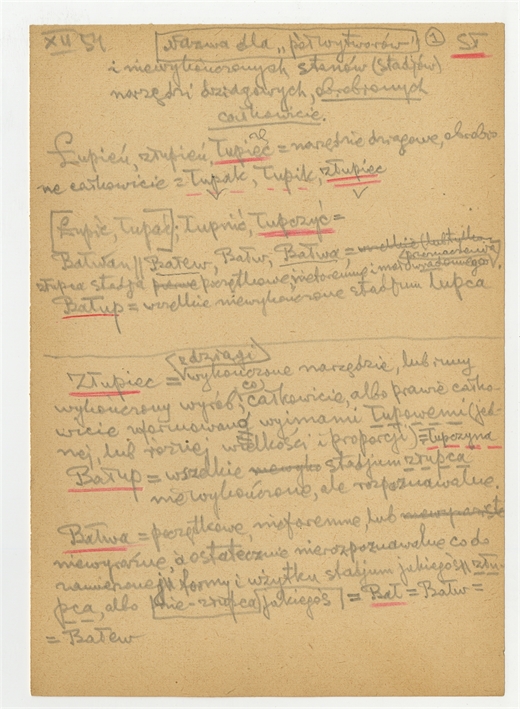 XII 54 Nazwa dla „półwytworów" 1 ST
i niewykończonych stanów (stadjów)
narzędzi dziagowych, obrobionych
całkowicie.
Łupień, złupień, Łupięć = narzędzie dziagowe, obrobio
ne całkowicie = Łupak, Łupik, złupiec
Łupie, Łupać; Łupnić, Łupczyć =
Bałwan || Bałew, Bałw, Bałwa =
złupca stadja początkowe, nieforemne i
Bałup = wszelkie niewykończone stadjum łupca
z dziagi
Złupiec = wykończone narzędzie, lub inny
wykończony wyrób, co całkowicie, albo prawie całko-
wicie uformowano wyjmami Łupowemi (jed-
nej lub różnej wielkości i proporcji) = Łupczyna
Bałup = wszelkie stadjum złupca
niewykończone, ale rozpoznawalne.
Bałwa = początkowe, nieforemne, lub
niewyraźne, a ostatecznie nierozpoznawalne co do
zamierzonej formy i użytku stadjum jakiegoś złu-
pca, albo nie-złupca jakiegoś = Bał = Bałw =
= Bałew